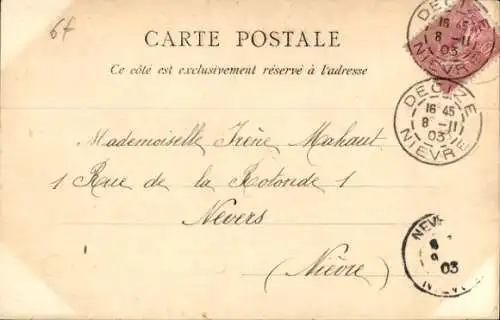 6f
CARTE POSTALE
Ce côté est exclusivement réservé à l'adresse
DECIZE
16 45
8 -11
03
NIEVRE
DECIZE
16 45
8 -11
03
NIEVRE
Mademoiselle Irène Mahaut
1 Rue de la Rotonde 1
Nevers
(Nièvre)
NEV
8
9
03